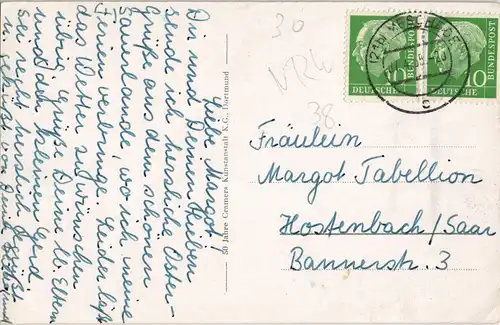 Liebe Margot!
Dir und Deinen Lieben
sende ich herzliche Oster-
grüße aus dem schönen
Sauerlande, wo ich meine
Ferien verbringe. Leider läßt
das Wetter zu wünschen
übrig. Grüß Deine lb. Eltern
und den kleinen Gerd,
sei recht herzlich gegrüßt
von Deiner
50 Jahre Cramers Kunstanstalt K.G., Dortmund
30
NRW
38
10
DEUTSCHE BUNDESPOST
10
DEUTSCHE BUNDESPOST
(21b)
c
Fräulein
Margot Tabellion
Hostenbach/Saar
Bannerstr. 3